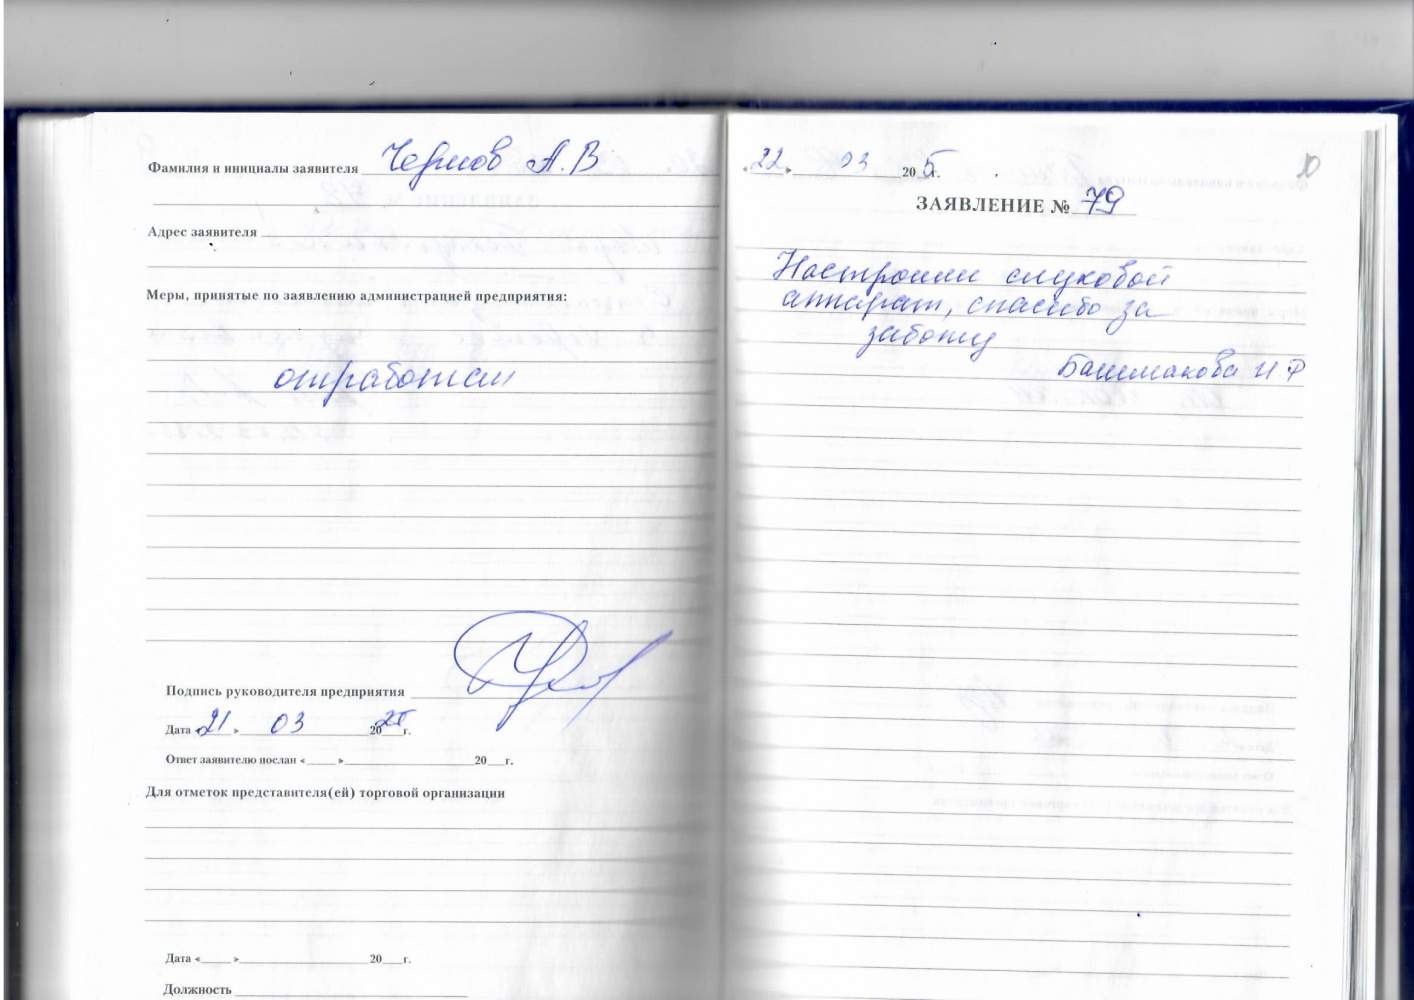 Фамилия и инициалы заявителя Чернов А.В
Адрес заявителя
Меры, принятые по заявлению администрацией предприятия:
отработан
Подпись руководителя предприятия
Дата «21» 03 2025 г.
Ответ заявителю послан «___» ___ 20__г.
Для отметок представителя(ей) торговой организации
Дата «___» ___ 20__г.
Должность
«22» 03 205 г.
ЗАЯВЛЕНИЕ № 79
Настроили слуховой
аппарат, спасибо за
заботу
Башмакова И Ф